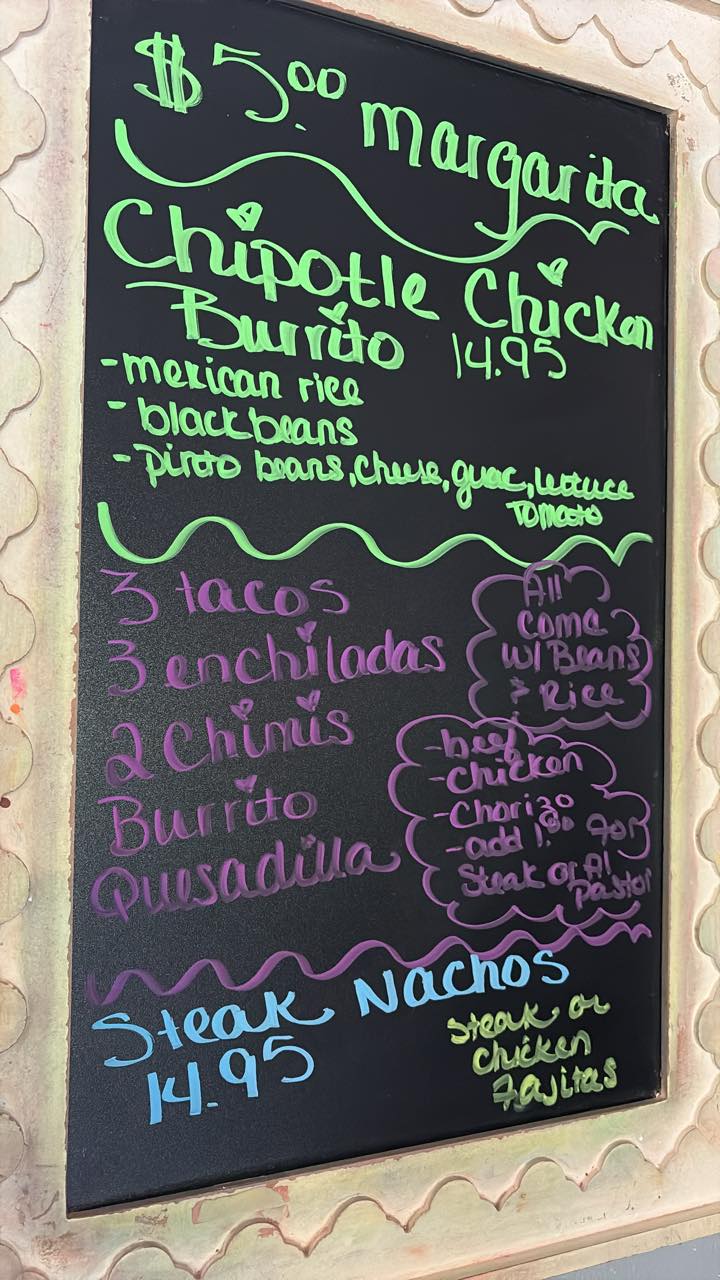 $5.00 margarita
Chipotle Chicken
Burrito 14.95
-mexican rice
-black beans
-pinto beans, cheese, guac, lettuce
Tomato
3 tacos
3 enchiladas
2 Chimis
Burrito
Quesadilla
All
come
w/ Beans
& Rice
-beef
-chicken
-chorizo
-add 1.00 for
Steak or Al
pastor
Steak Nachos
14.95
Steak or
chicken
fajitas